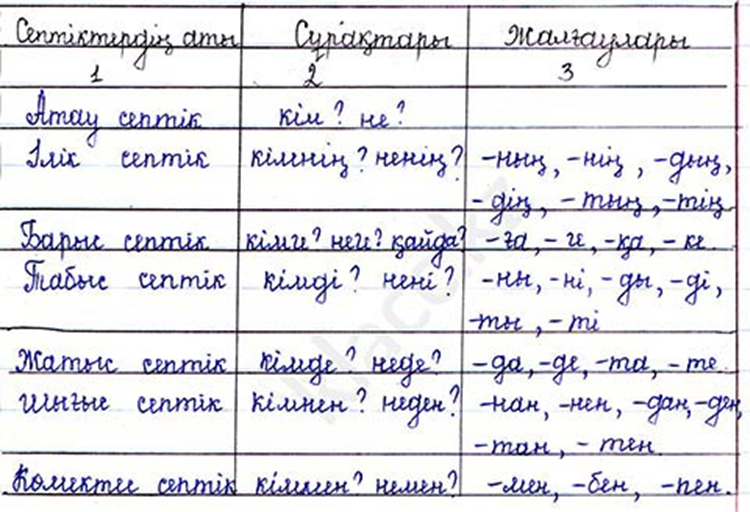 Септіктердің аты Сұрақтары Жалғаулары
1 2 3
Атау септік кім? не?
Ілік септік кімнің? ненің? -ның, -нің, -дың,
-дің, -тың, -тің
Барыс септік кімге? неге? қайда? -ға, -ге, -қа, -ке.
Табыс септік кімді? нені? -ны, -ні, -ды, -ді,
-ты, -ті
Жатыс септік кімде? неде? -да, -де, -та, -те.
Шығыс септік кімнен? неден? -нан, -нен, -дан, -ден,
-тан, -тен.
Көмектес септік кіммен? немен? -мен, -бен, -пен.
klacca.kz